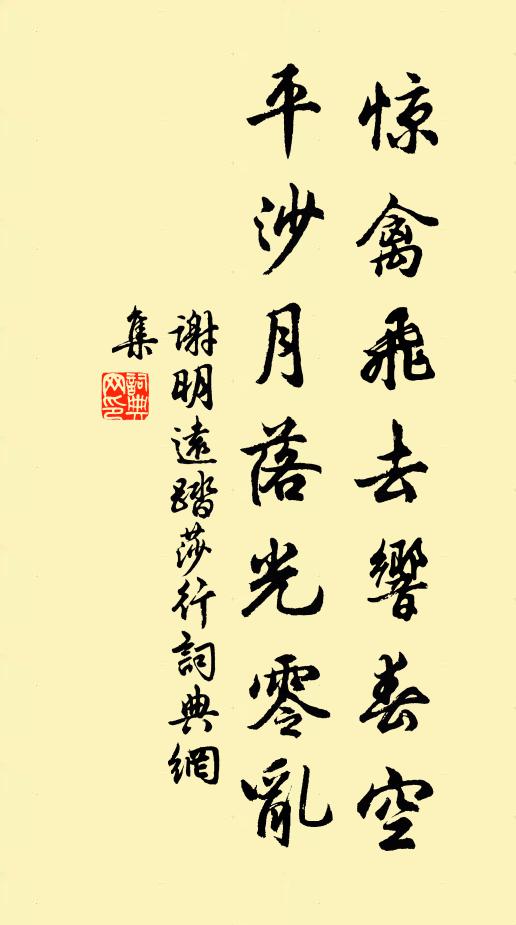 惊禽飛去響春空
平沙月落光零亂
谢明遠踏莎行詞典網
集
詞典
网印